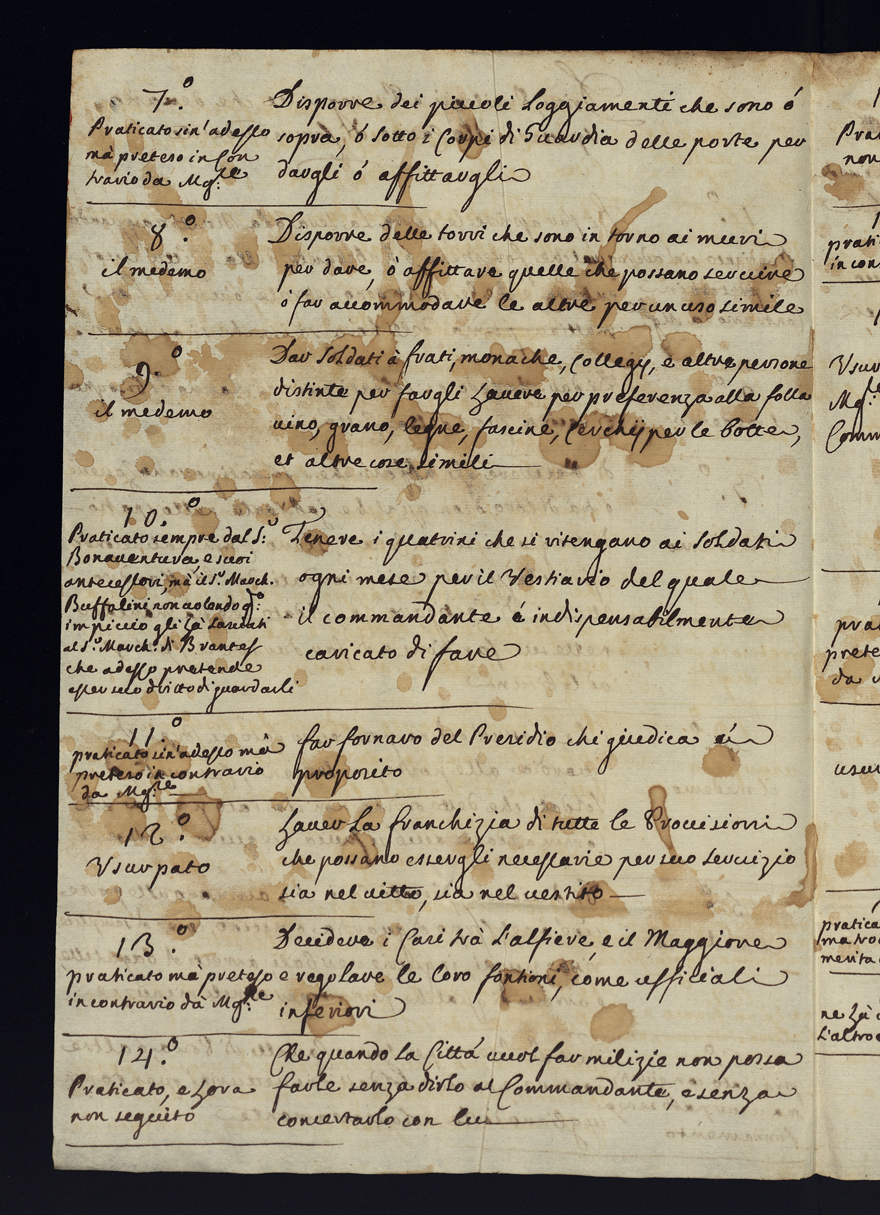 7.º
Praticato sin' adesso
mà preteso in Con
trario da Mg:re
Disporre dei piccoli Loggiamenti che sono ó
sopra, ó sotto i Corpi di Guardia delle porte per
dargli ó affittargli
8.º
il medemo
Disporre delle torri che sono in torno ai muri
per dare, ò affittare quelle che possano servire
ó far accommodare le altre per un uso simile
9.º
il medemo
Dar Soldati à frati, monache, Collegij, e altre persone
distinte per fargli havere per preferenza alla folla
vino, grano, legne, fascine, Cerchij per le botte,
et altre cose simili
10.º
Praticato sempre dal S:r
Bonaventura, e suoi
antecessori, mà il S.r March.
Buffalini non volendo q.to
impiccio gli hà lasciati
al S.r March. di Brantes
che adesso pretende
esser suo dritto di guardarli
Tenere i quatrini che si ritengano ai Soldati
ogni mese per il Vestiario del quale
il commandante é indispensabilmente
caricato di fare
11.º
praticato sin' adesso mà
preteso in contrario
da Mg:re
far fornaro del Presidio chi giudica á
proposito
12.º
Usurpato
Haver La franchizia di tutte le Provisioni
che possano essergli necessarie per suo servizio
sia nel vitto, sia nel vestito
13.º
praticato mà preteso
in contrario dà Mg:re
Decidere i Casi trà L'alfiere, e il Maggiore
e regolare le loro fontioni, cóme ufficiali
inferiori
14.º
Praticato, e hora
non seguito
Che quando La Cittá vuol far milizie non possa
farle senza dirlo al Commandante, e senza
concertarlo con lui